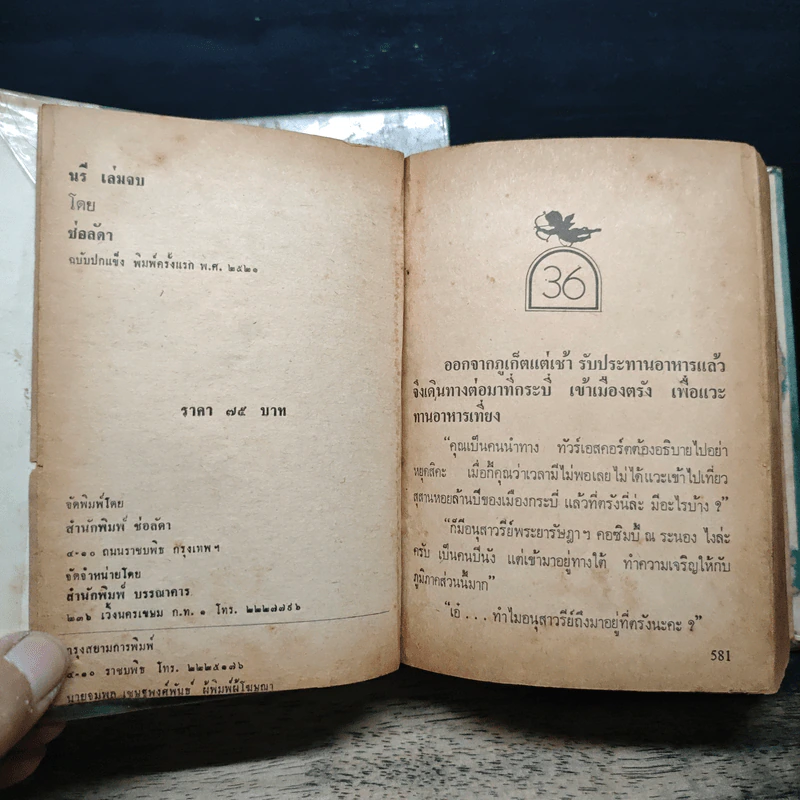 นรี เล่มจบ
โดย
ช่อลัดา
ฉบับปกแข็ง พิมพ์ครั้งแรก พ.ศ. ๒๕๒๑
ราคา ๗๕ บาท
จัดพิมพ์โดย
สำนักพิมพ์ ช่อลัดา
๔-๑๐ ถนนราชบพิธ กรุงเทพฯ
จัดจำหน่ายโดย
สำนักพิมพ์ บรรณาคาร
๒๓๖ เวิ้งนครเขษม ก.ท. ๑ โทร. ๒๒๒๗๗๙๖
กรุงสยามการพิมพ์
๔-๑๐ ราชบพิธ โทร. ๒๒๒๕๑๗๖
นายจุมพล เชษฐพงศ์พันธุ์ ผู้พิมพ์ผู้โฆษณา
36
ออกจากภูเก็ตแต่เช้า รับประทานอาหารแล้ว
จึงเดินทางต่อมาที่กระบี่ เข้าเมืองตรัง เพื่อแวะ
ทานอาหารเที่ยง
“คุณเป็นคนนำทาง ทัวร์เอสคอร์ตต้องอธิบายไปอย่า
หยุดสิคะ เมื่อกี้คุณว่าเวลามีไม่พอเลยไม่ได้แวะเข้าไปเที่ยว
สุสานหอยล้านปีของเมืองกระบี่ แล้วที่ตรังนี่ล่ะ มีอะไรบ้าง ?”
“ก็มีอนุสาวรีย์พระยารัษฎาฯ คอซิมบี้ ณ ระนอง ไงล่ะ
ครับ เป็นคนปีนัง แต่เข้ามาอยู่ทางใต้ ทำความเจริญให้กับ
ภูมิภาคส่วนนี้มาก”
“เอ๋ . . . ทำไมอนุสาวรีย์ถึงมาอยู่ที่ตรังนะคะ ?”
581